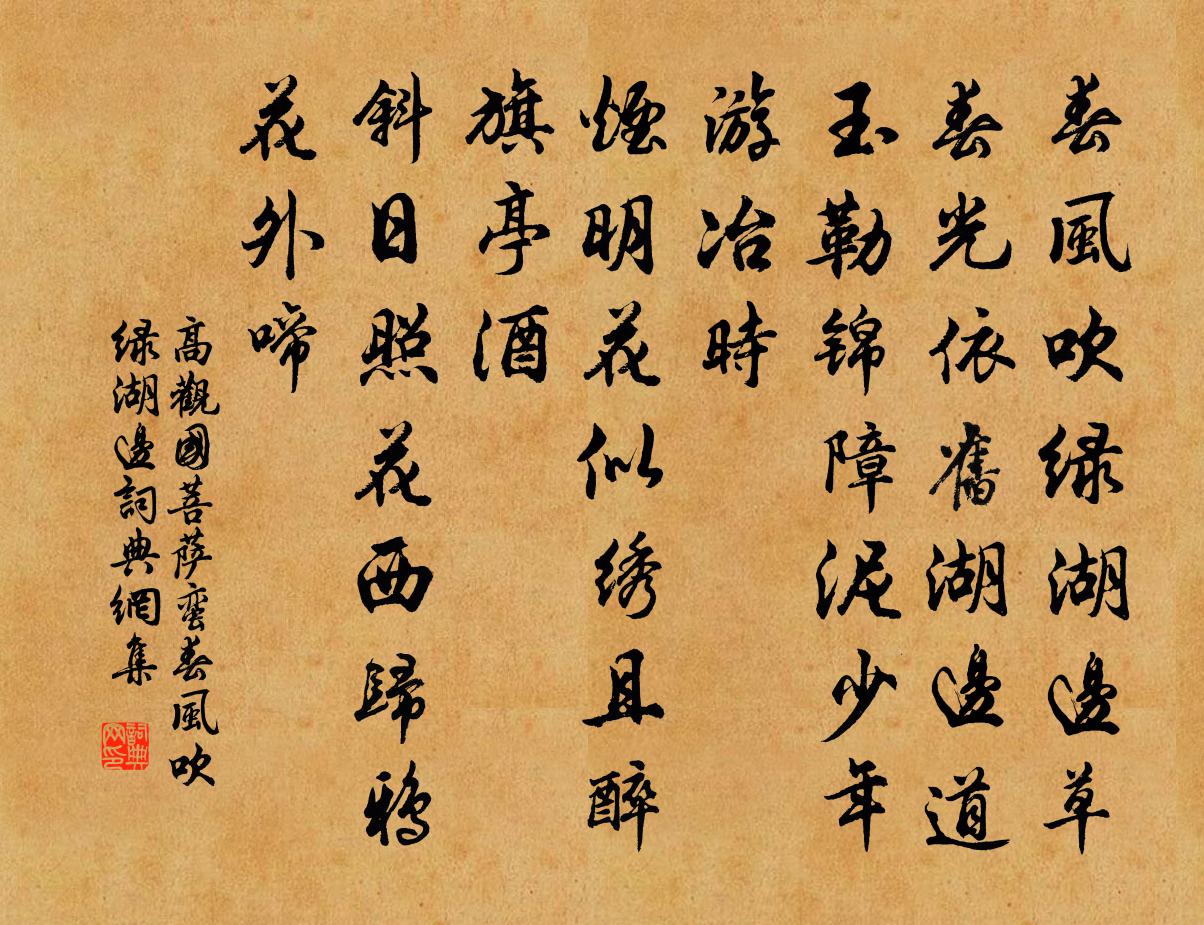 春風吹绿湖邊草
春光依舊湖邊道
玉勒锦障泥少年
游冶時
煙明花似绣且醉
旗亭酒
斜日照花西歸鴉
花外啼
高觀國菩萨蛮春風吹
绿湖邊詞典網集
詞典
网印